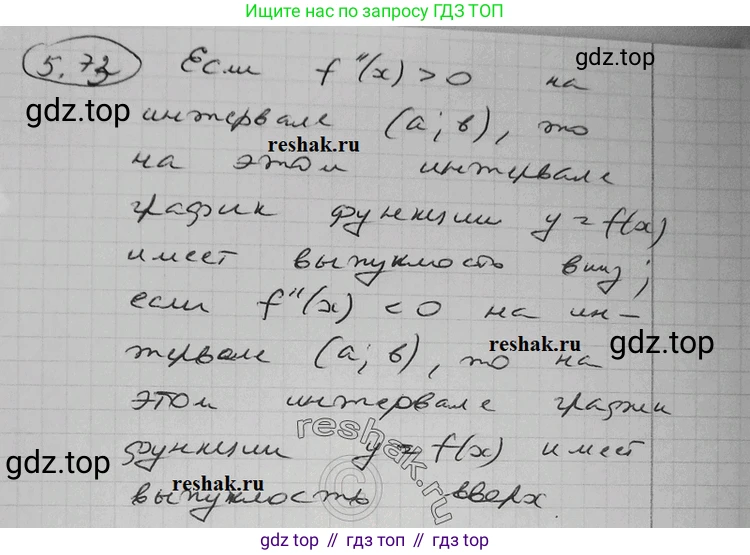 Ищите нас по запросу ГДЗ ТОП
5.73 Если f''(x) > 0 на
gdz.top
gdz.top
интервале (a; в), то
reshak.ru
на этом интервале
график функции y = f(x)
имеет выпуклость вниз;
если f''(x) < 0 на ин-
reshak.ru
gdz.top
тервале (a; в), то на
этом интервале график
reshak.ru
функции y = f(x) имеет
gdz.top
reshak.ru
выпуклость вверх.
gdz.top
gdz.top // гдз.топ // gdz.top